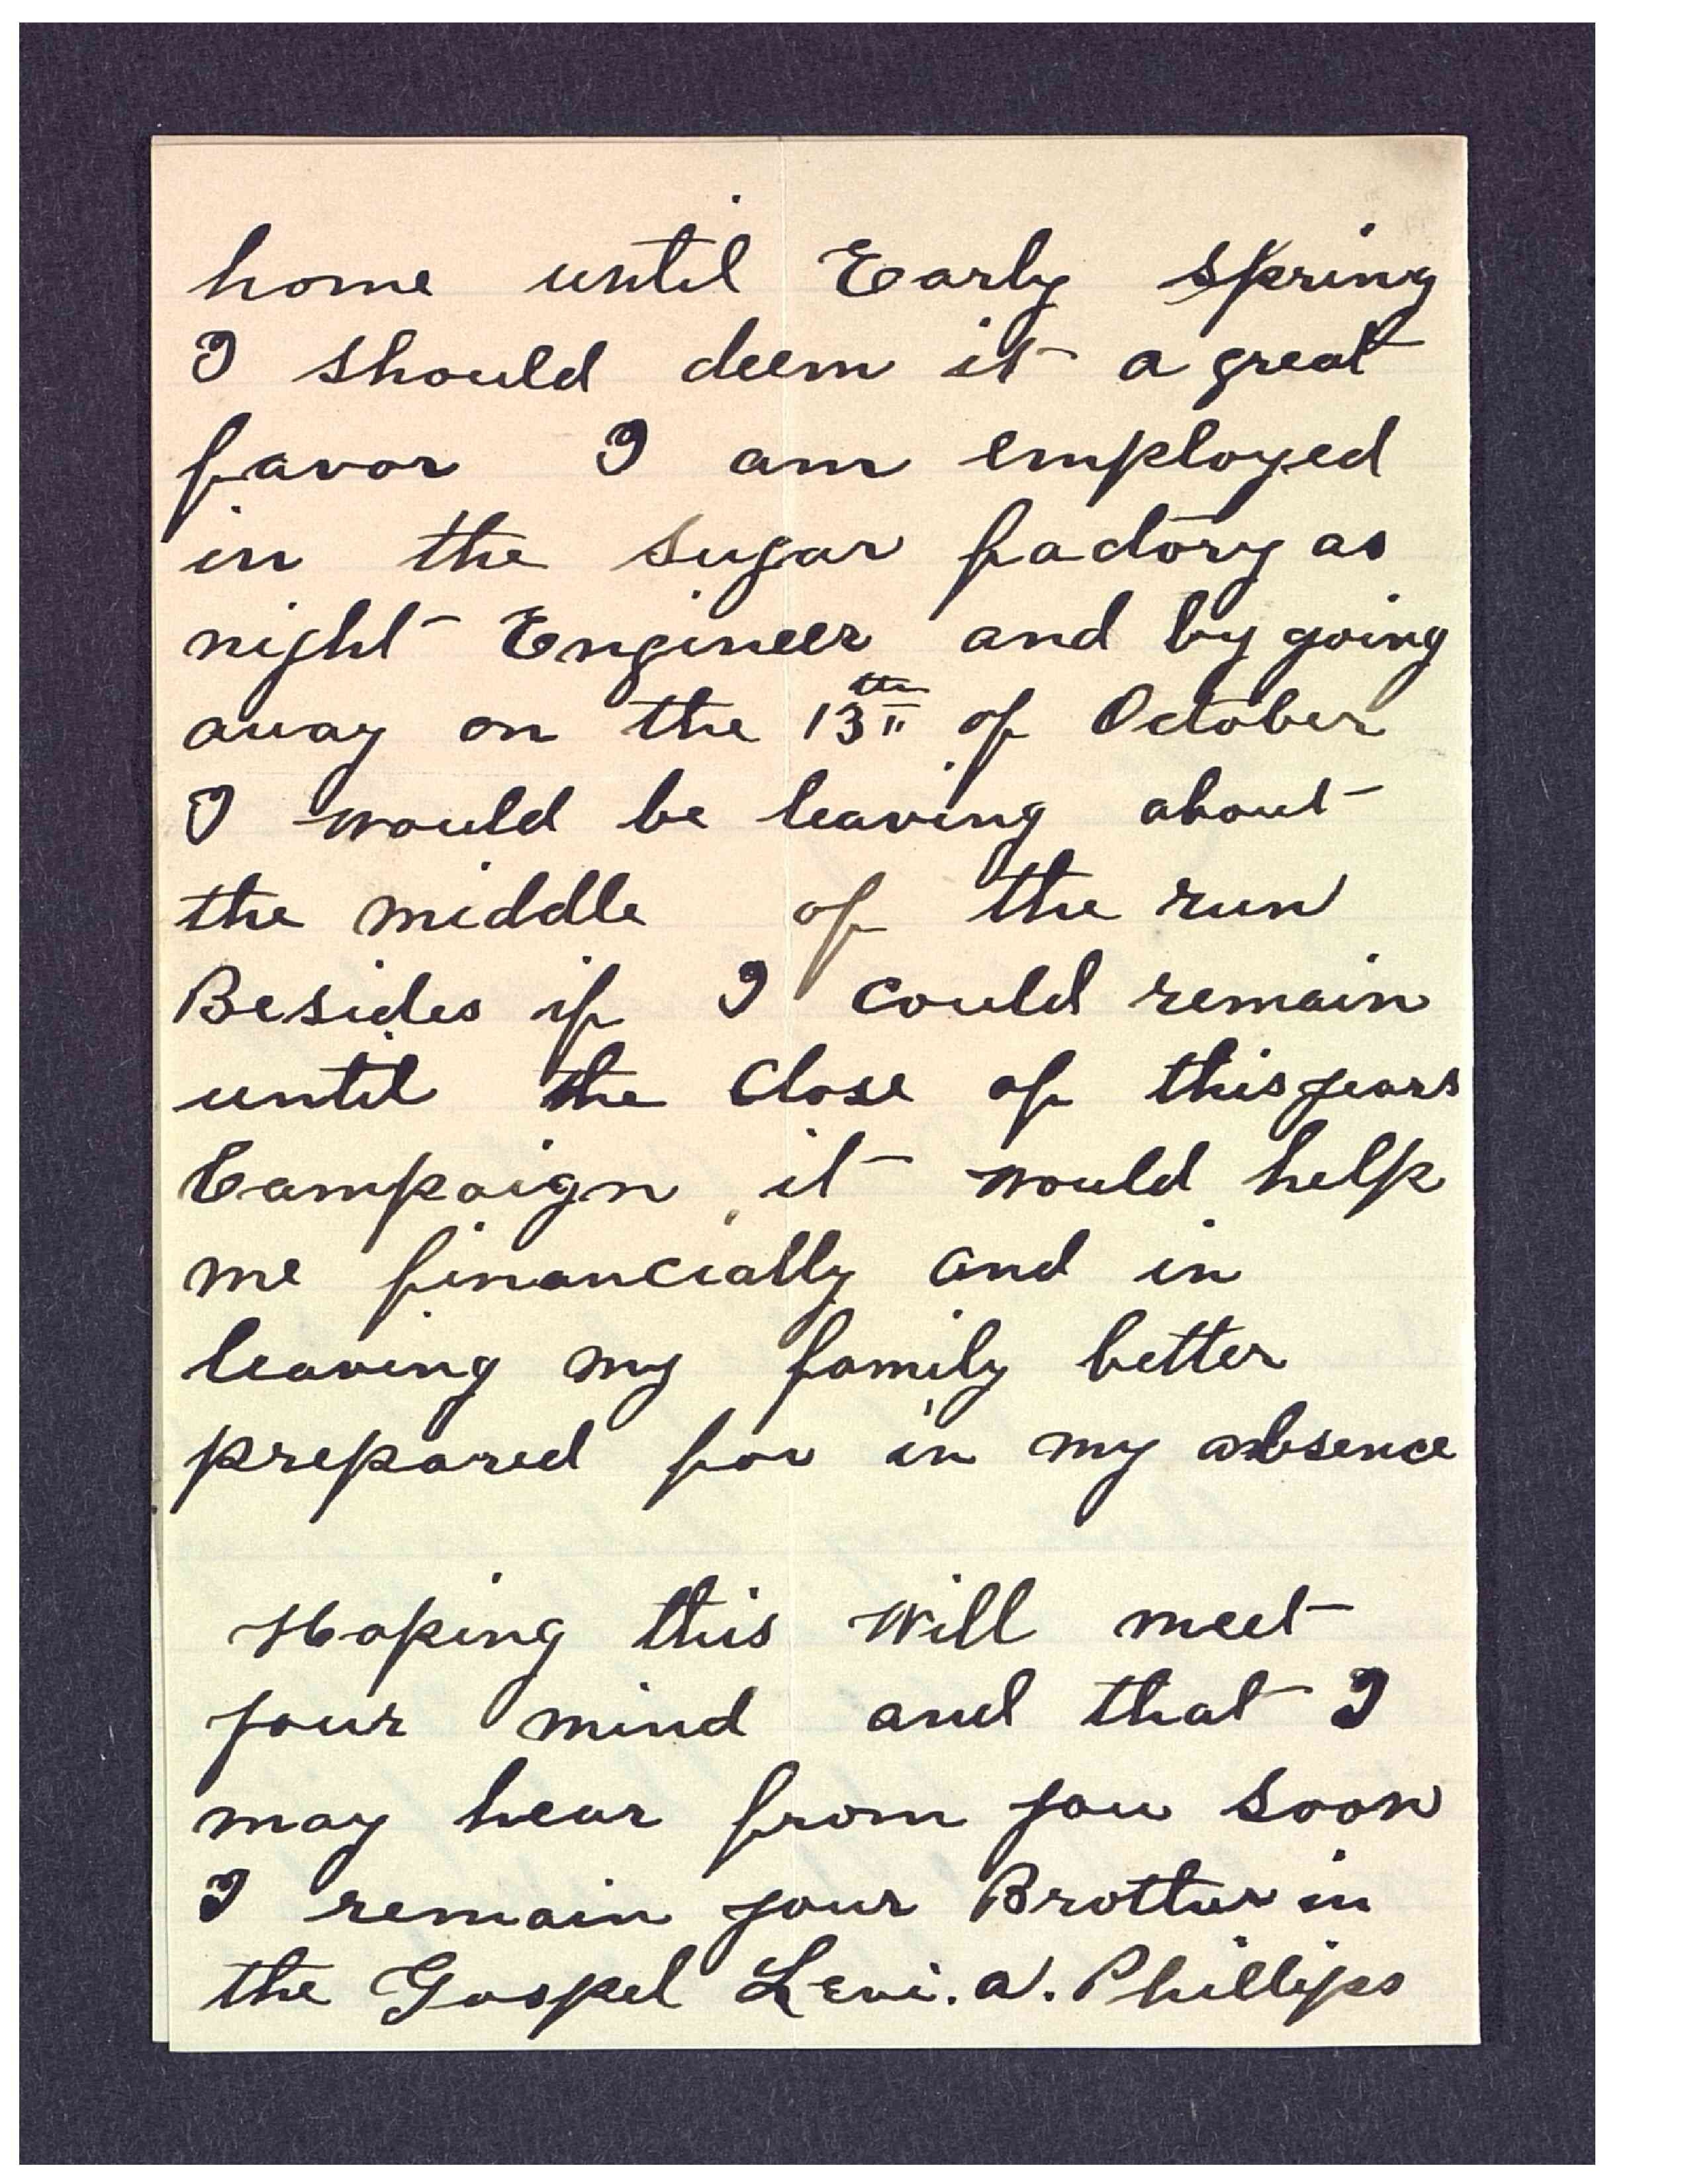 home until Early spring
I should deem it a great
favor I am employed
in the sugar factory as
night Engineer and by going
away on the 13th of October
I would be leaving about
the middle of the run
Besides if I could remain
until the Close of this years
Campaign it would help
me financially and in
leaving my family better
prepared for in my absence
Hoping this will meet
your mind and that I
may hear from you soon
I remain your Brother in
the Gospel Levi. A. Phillips